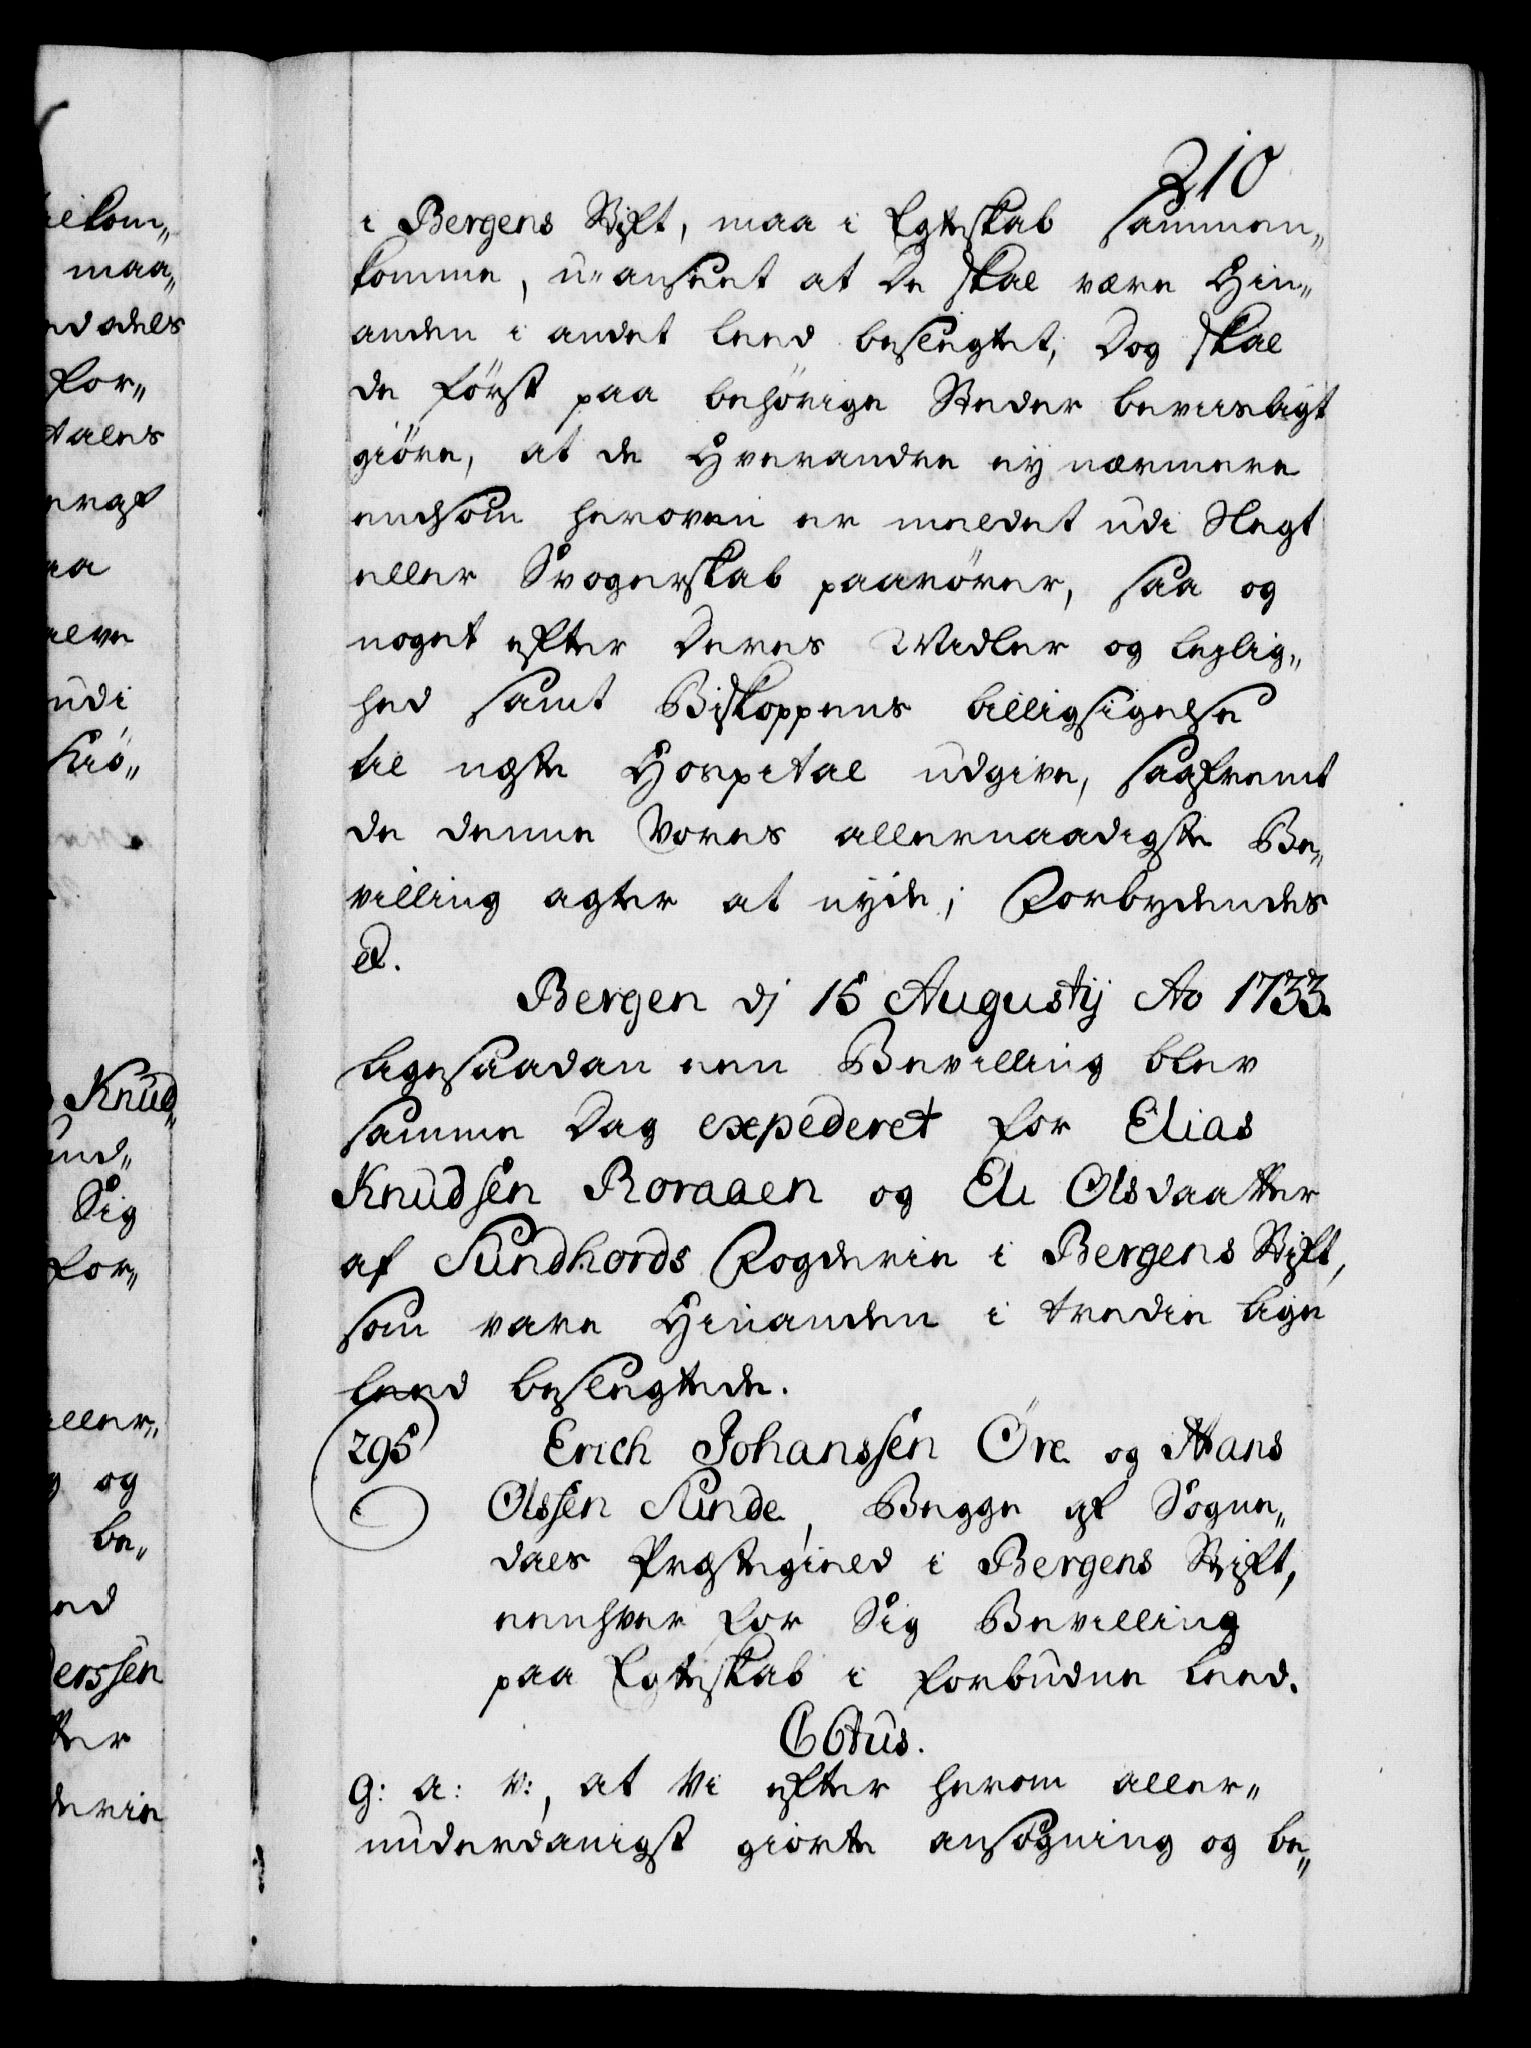 210
i Bergens Stift, maa i Egteskab sammen„
komme, u-anseet at De skal være Hin„
anden i andet Leed beslegtet, Dog skal
de först paa behörige Steder beviisligt
giöre, at de Hverandre ey nærmere
endsom heroven er meldet udi Slegt
eller Svogerskab paarörer, saa og
noget efter Deres Midler og Leylig„
hed samt Biskoppens billigsigelse
til næste Hospital udgive, saafremt
de denne Vores allernaadigste Be„
villing agter at nyde; Forbydendes
et.
Bergen dj 15 Augustij Ao 1733.
Ligesaadan een Bevilling blev
samme Dag expederet for Elias
Knudsen Roraaen og Eli Olsdaatter
af Sundhords Fogderie i Bergens Stift,
som vare Hinanden i tredie lige
Leed beslegtede.
295 Erich Johanssen Öre og Hans
Olssen Sunde, Begge af Sogne„
dals Præstegield i Bergens Stift,
eenhver for Sig Bevilling
paa Egteskab i forbudne Leed.
C6tus.
G: a: v:, at Vi efter herom aller„
underdanigst giorte ansögning og be„
ilkom„
maa„
for„
tales
udi
Knud„
Sig
for„
eller„
og
be„
ed
derssen
derie